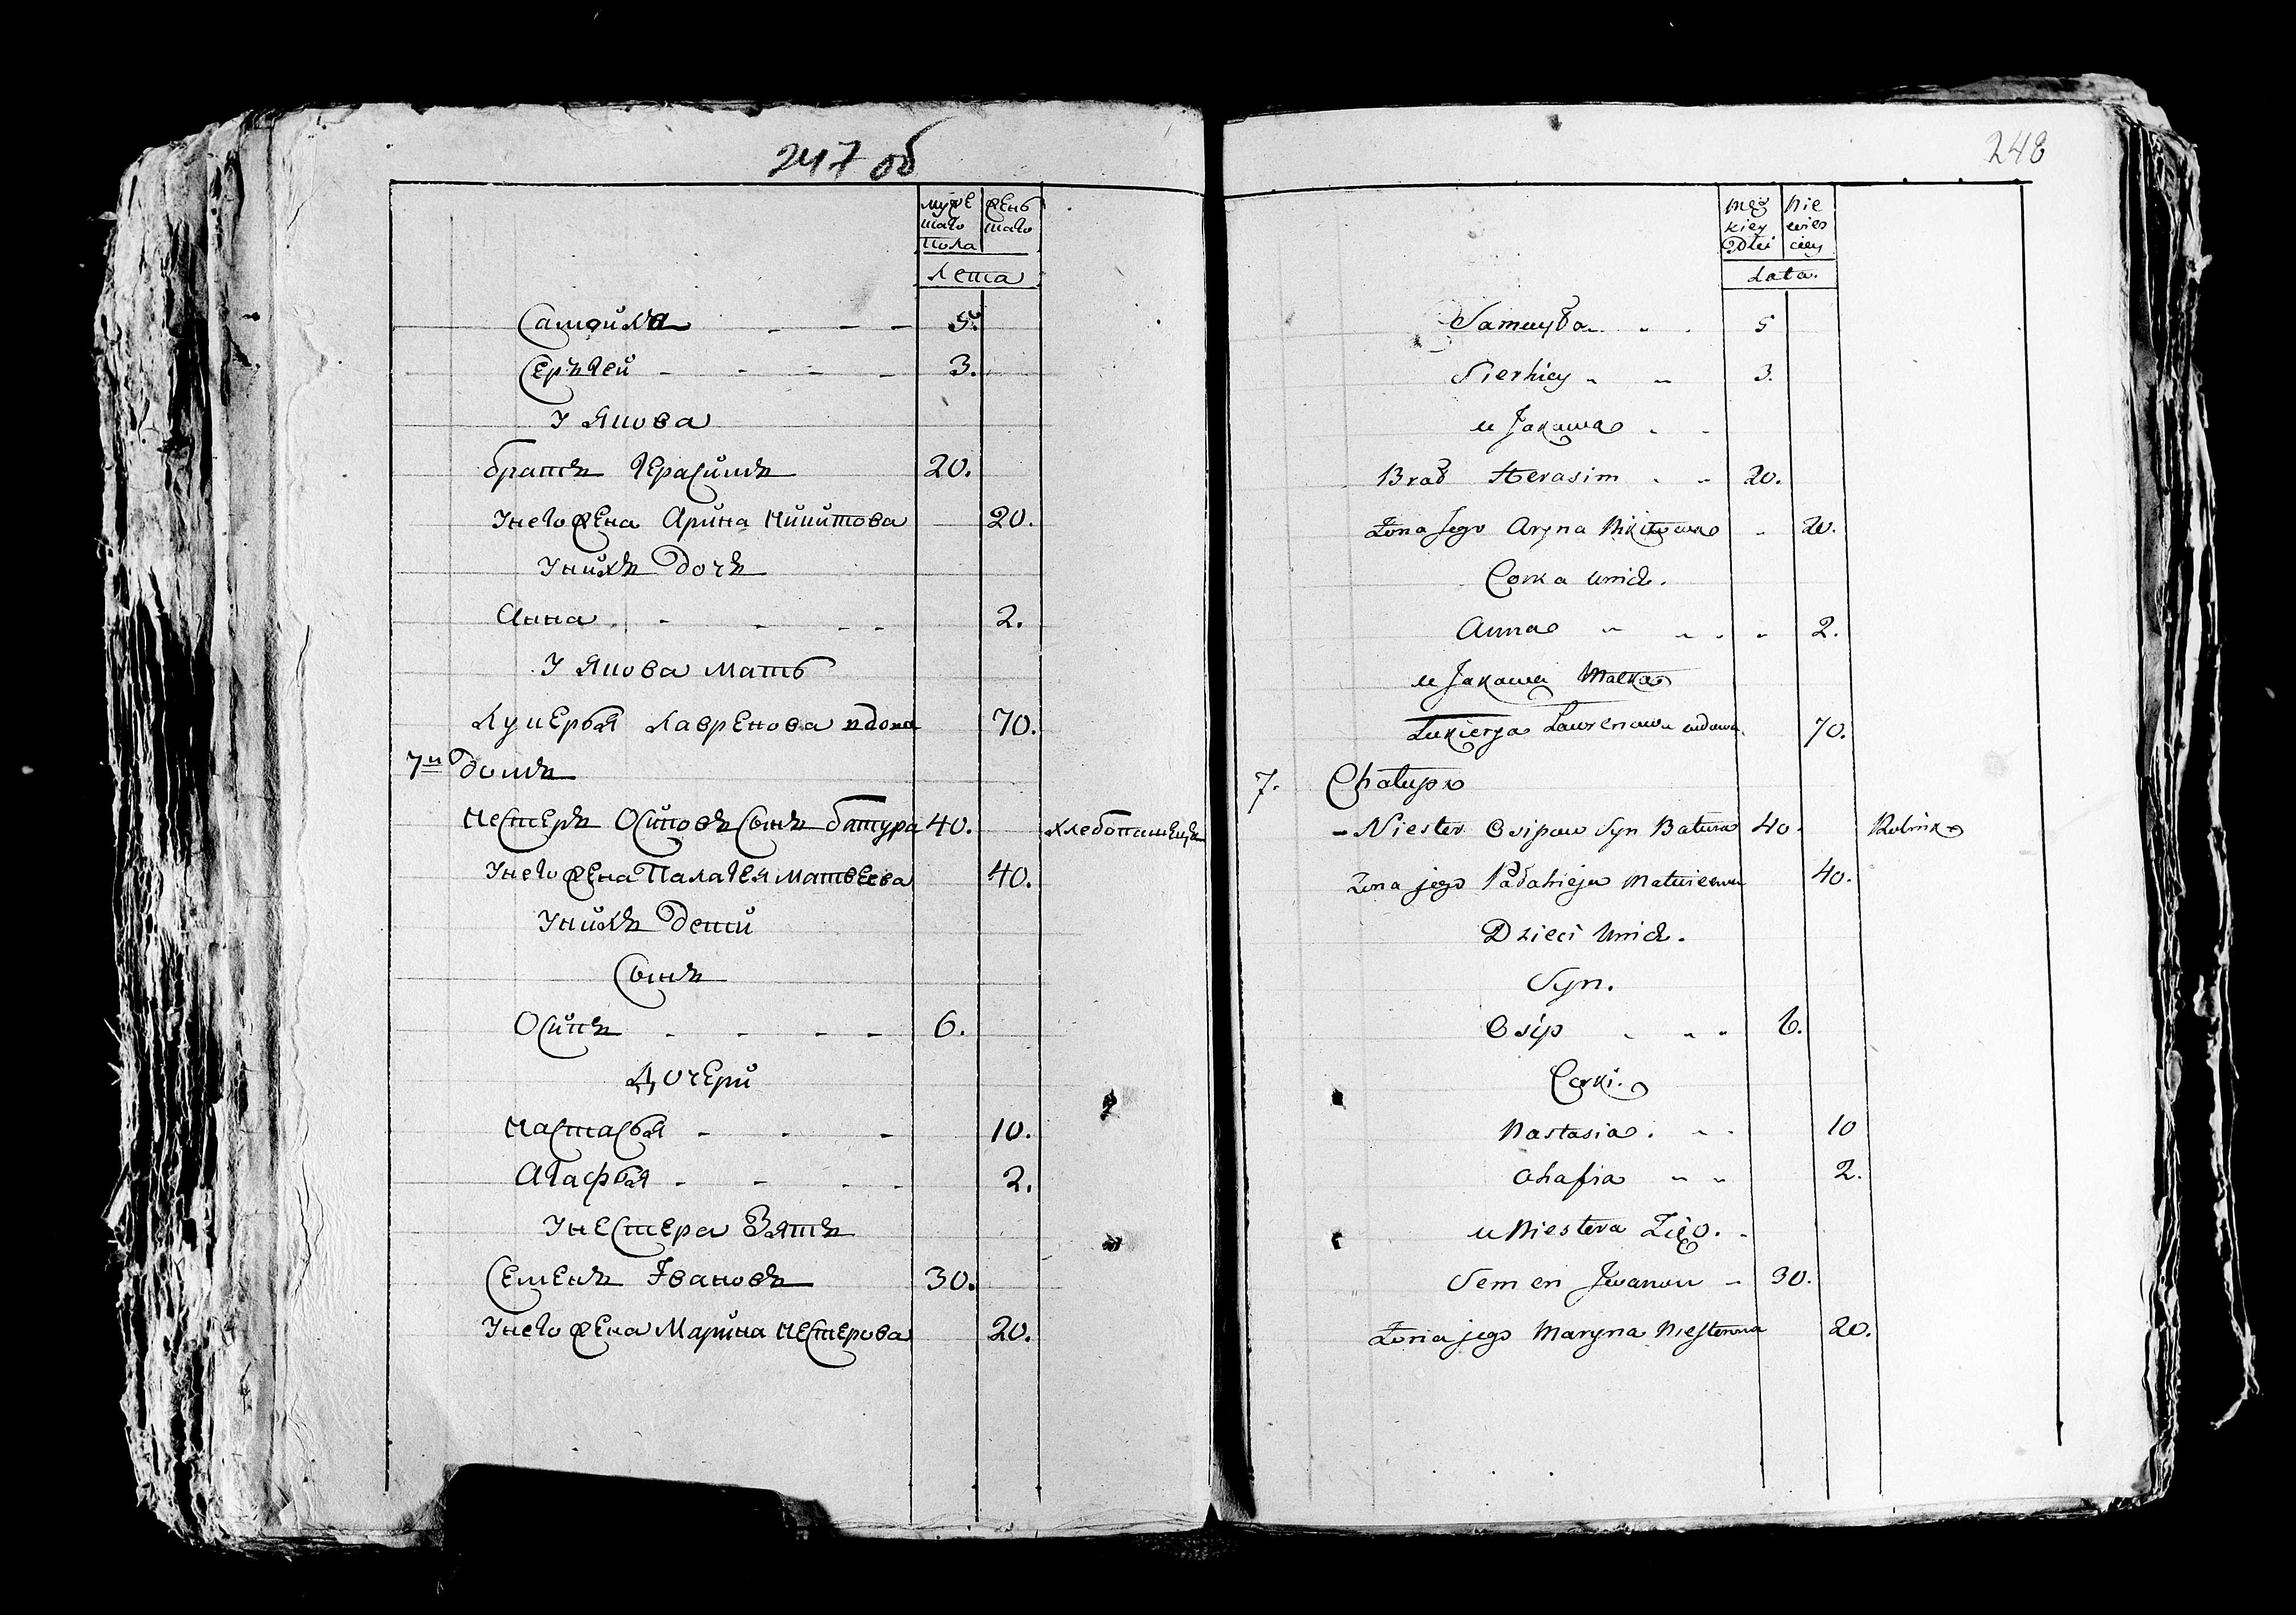 247 об
муже женс
скаго скаго
пола
Лета
Самойла 5.
Сергей 3.
У Якова
братъ Герасимъ 20.
У него жена Арина Никитова 20.
У нихъ дочь
Анна 2.
У Якова мать
Лукерья Лавренова вдова 70.
7й домъ
Нестеръ Осиповъ сынъ батура 40. хлебопашецъ
У него жена Палагея Матвеева 40.
У нихъ дети
Сынъ
Осипъ 6.
Дочери
Настасья 10.
Агафья 2.
У Нестера зять
Семенъ Ивановъ 30.
У него жена Марина Нестерова 20.
248
męz nie
kiey wies
Płci ciey
Lata.
Samuyła 5
Sierhiey 3.
u Jakowa
Brat Herasim 20.
Zona jego Aryna Nikitowa 20.
Corka unich.
Anna 2.
u Jakowa Matka
Łukierya Lawrenowa wdowa. 70.
7. Chałupa
Niester Osipow Syn Batura 40. Rolnik
Zona jego Pałahieja Matwiewa 40.
Dzieci unich.
Syn.
Osip 6.
Corki.
Nastasia. 10
Ahafia 2.
u Niestera Zięć.
Semen Jwanow 30.
Zona jego Maryna Niesterowa 20.